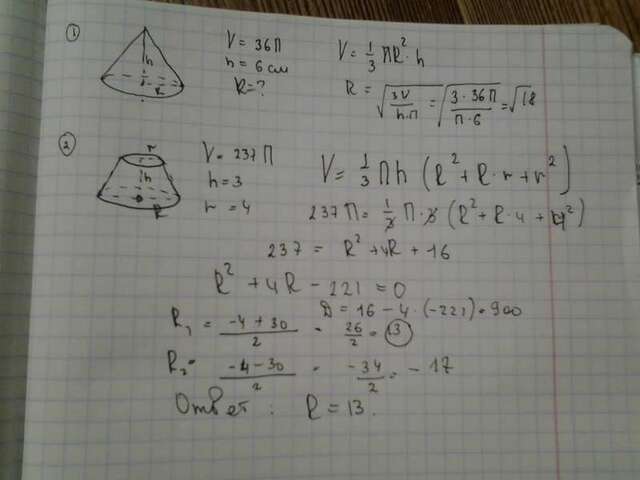 1
h
R
V = 36П
h = 6 см
R = ?
V = 1/3 ПR² · h
R = √(3V/(h·П)) = √(3·36П/(П·6)) = √18
2
r
h
R
V = 237П
h = 3
r = 4
V = 1/3 Пh (R² + R·r + r²)
237П = 1/3 П·3 (R² + R·4 + 4²)
237 = R² + 4R + 16
R² + 4R - 221 = 0
D = 16 - 4·(-221) = 900
R₁ = (-4+30)/2 = 26/2 = 13
R₂ = (-4-30)/2 = -34/2 = -17
Ответ : R = 13.